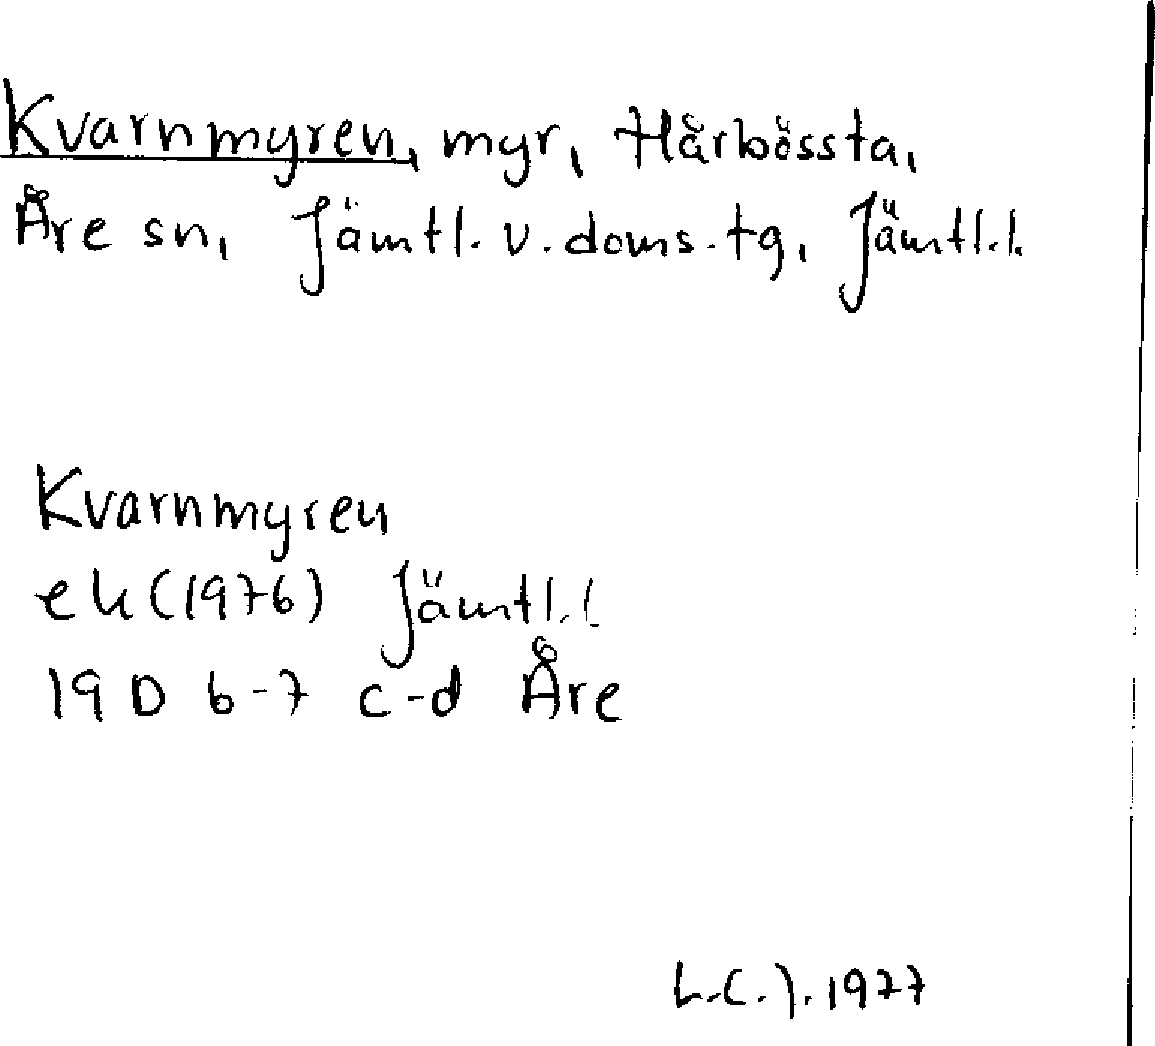 Kvarnmyren, myr, Hårbössta,
Åre sn, Jämtl. v. doms. tg, Jämtl. l.
Kvarnmyren
ek (1976) Jämtl. l
19 D 6-7 c-d Åre
L.C.J. 1977